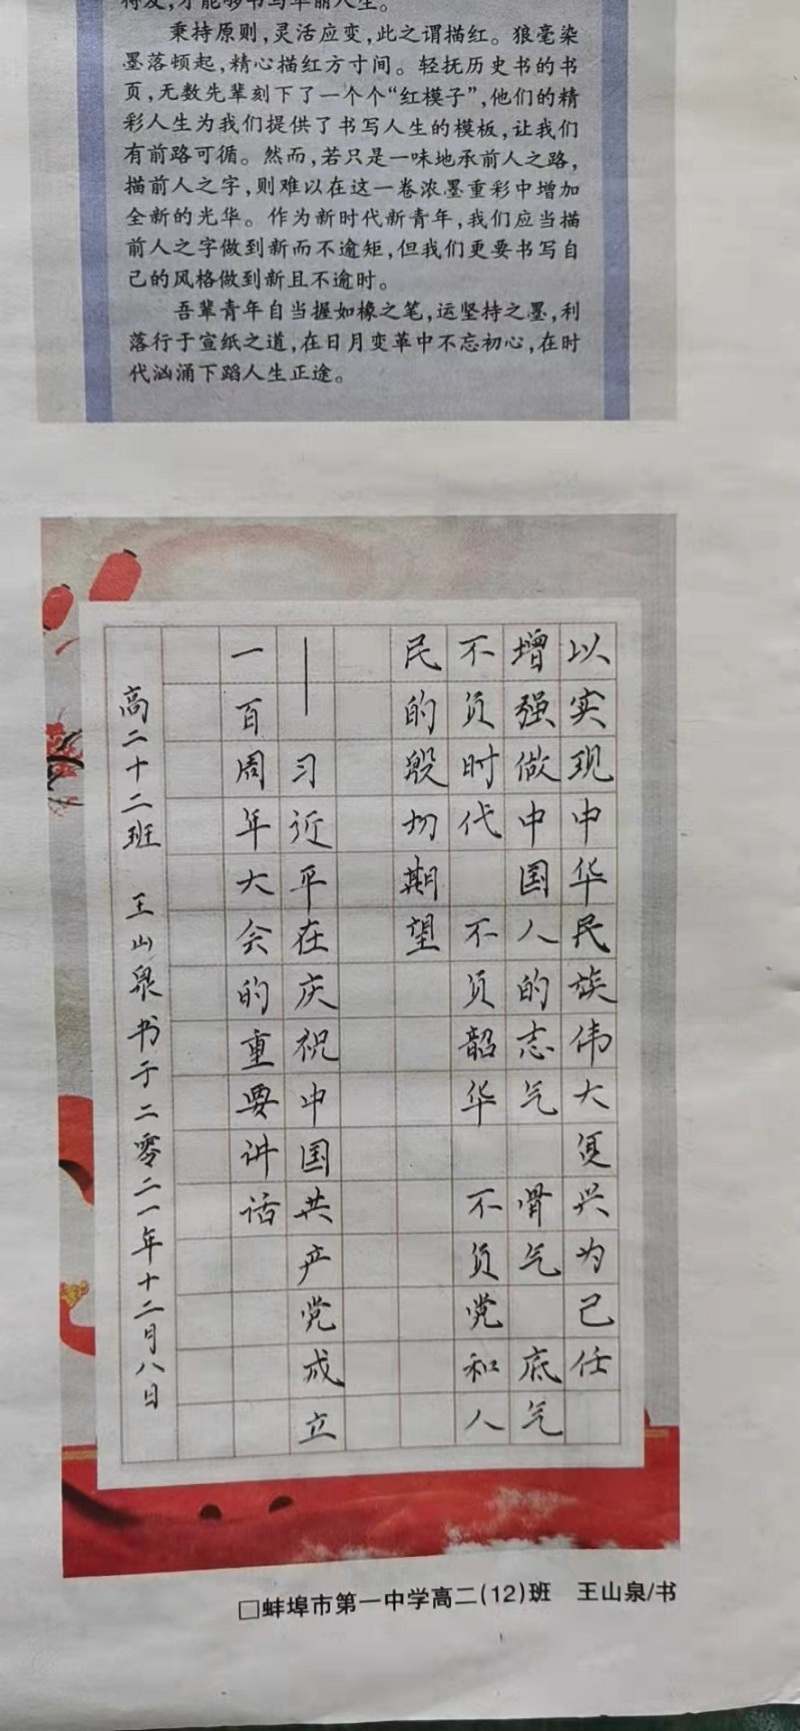 得发,才能够书写华丽人生。
秉持原则,灵活应变,此之谓描红。狼毫染
墨落顿起,精心描红方寸间。轻抚历史书的书
页,无数先辈刻下了一个个“红模子”,他们的精
彩人生为我们提供了书写人生的模板,让我们
有前路可循。然而,若只是一味地承前人之路,
描前人之字,则难以在这一卷浓墨重彩中增加
全新的光华。作为新时代新青年,我们应当描
前人之字做到新而不逾矩,但我们更要书写自
己的风格做到新且不逾时。
吾辈青年自当握如椽之笔,运坚持之墨,利
落行于宣纸之道,在日月变革中不忘初心,在时
代汹涌下蹈人生正途。
以实现中华民族伟大复兴为己任
增强做中国人的志气 骨气 底气
不负时代 不负韶华 不负党和人
民的殷切期望
——习近平在庆祝中国共产党成立
一百周年大会的重要讲话
高二十二班 王山泉书于二零二一年十二月八日
□蚌埠市第一中学高二(12)班 王山泉/书